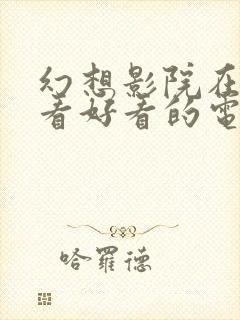 幻想影院在
看好看的電
哈羅德